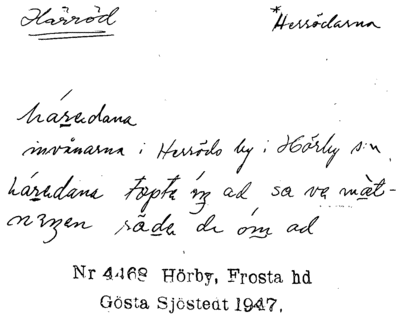 Härröd *Herrödarna
háredana
invånarna i Herröds by i Hörby sn.
háredana topta ad sa va màt-
säda di óm ad
Nr 4468 Hörby, Frosta hd
Gösta Sjöstedt 1947.